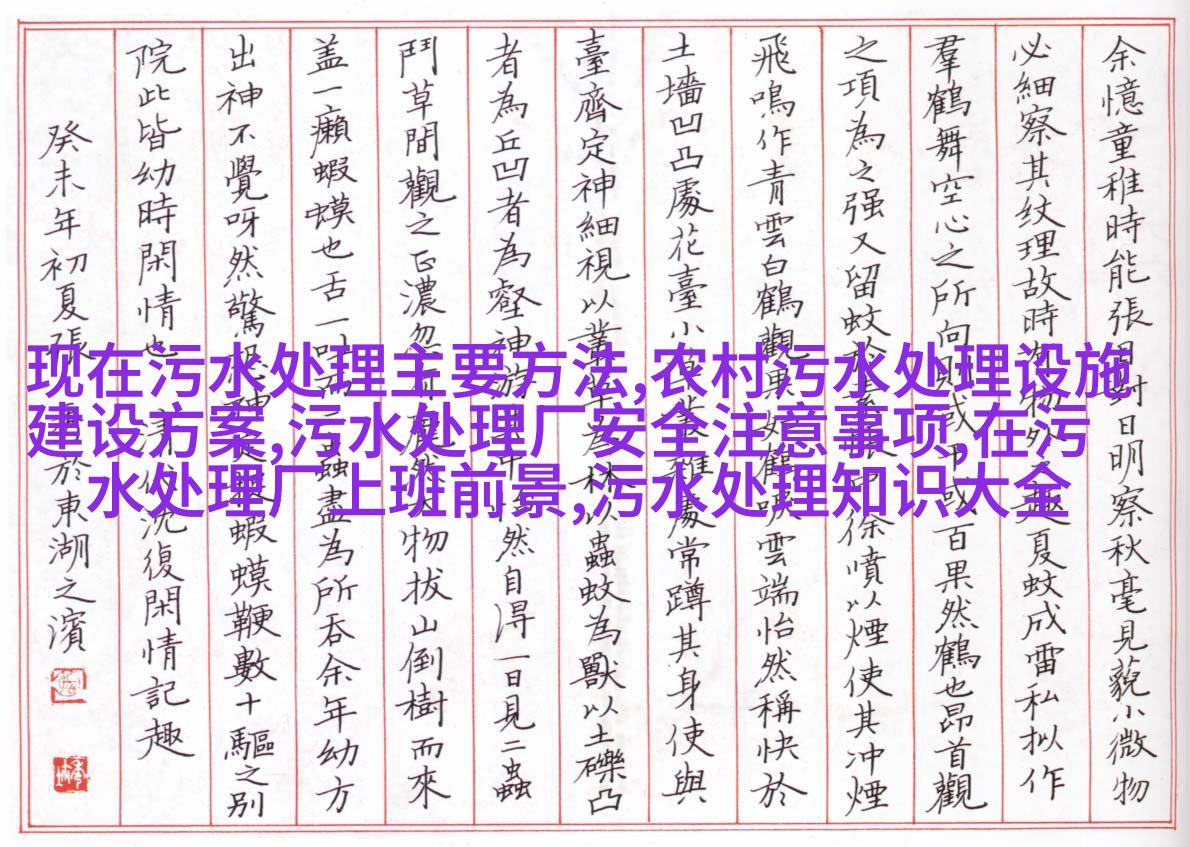 现在污水处理主要方法,农村污水处理设施
建设方案,污水处理厂安全注意事项,在污
水处理厂上班前景,污水处理知识大全
余憶童稚時能張目對日明察秋毫見藐小微物
必細察其纹理故時有物外之趣夏蚊成雷私拟作
羣鶴舞空心之所向則或千或百果然鶴也昂首觀
之項為之强又留蚊於素帳中徐噴以煙使其冲煙
飛鳴作青雲白鶴觀果如鶴唳雲端怡然稱快於
土墻凹凸處花臺小草叢雜處常蹲其身使與
臺齊定神細視以叢草為林以蟲蚊為獸以土礫凸
者為丘凹者為壑神游其中怡然自得一日見二蟲
鬥草間觀之正濃忽有龐然大物拔山倒樹而來
盖一癩蝦蟆也舌一吐而二蟲盡為所吞余年幼方
出神不覺呀然驚恐神定捉蝦蟆鞭數十驅之别
院此皆幼時閑情也清代沈復閑情記趣
癸未年初夏張書於東湖之濱